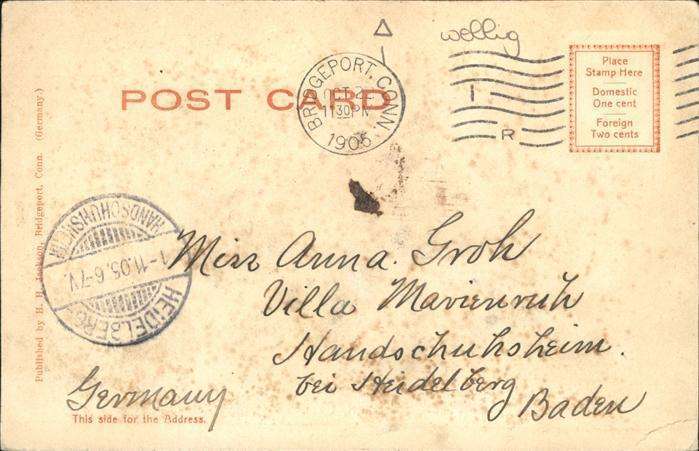 wellig
POST CARD
BRIDGEPORT, CONN.
OCT 2
11 30 P
1905
I
R
Place
Stamp Here
Domestic
One cent
Foreign
Two cents
Published by H. H. Jackson, Bridgeport, Conn. (Germany)
HANDSCHUHSHEIM
1-11.05.6-7V.
HEIDELBERG
Miss Anna. Groh
Villa Marienruh
Handschuhsheim.
bei Heidelberg
Baden
Germany
This side for the Address.